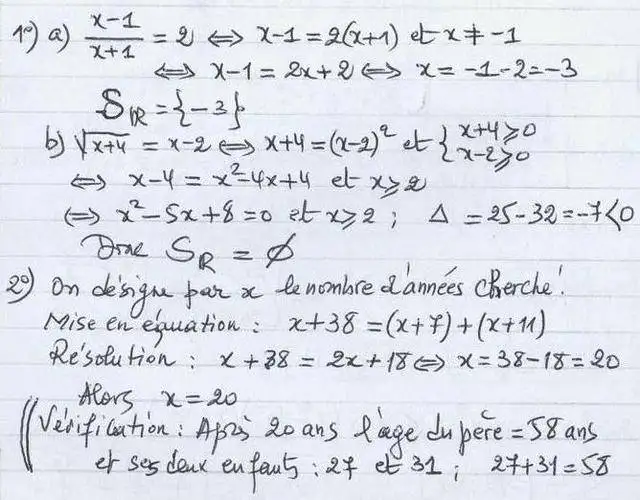 1°) a) (x-1)/(x+1) = 2 ⟺ x-1 = 2(x+1) et x ≠ -1
⟺ x-1 = 2x+2 ⟺ x = -1-2 = -3
S_ℝ = {-3}
b) √(x+4) = x-2 ⟺ x+4 = (x-2)² et { x+4 ⩾ 0
x-2 ⩾ 0
⟺ x-4 = x²-4x+4 et x ⩾ 2
⟺ x²-5x+8 = 0 et x ⩾ 2 ; Δ = 25-32 = -7 < 0
Donc S_ℝ = ∅
2°) On désigne par x le nombre d'années cherché.
Mise en équation : x+38 = (x+7) + (x+11)
Résolution : x+38 = 2x+18 ⟺ x = 38-18 = 20
Alors x = 20
Vérification : Après 20 ans l'âge du père = 58 ans
et ses deux enfants : 27 et 31 ; 27+31 = 58